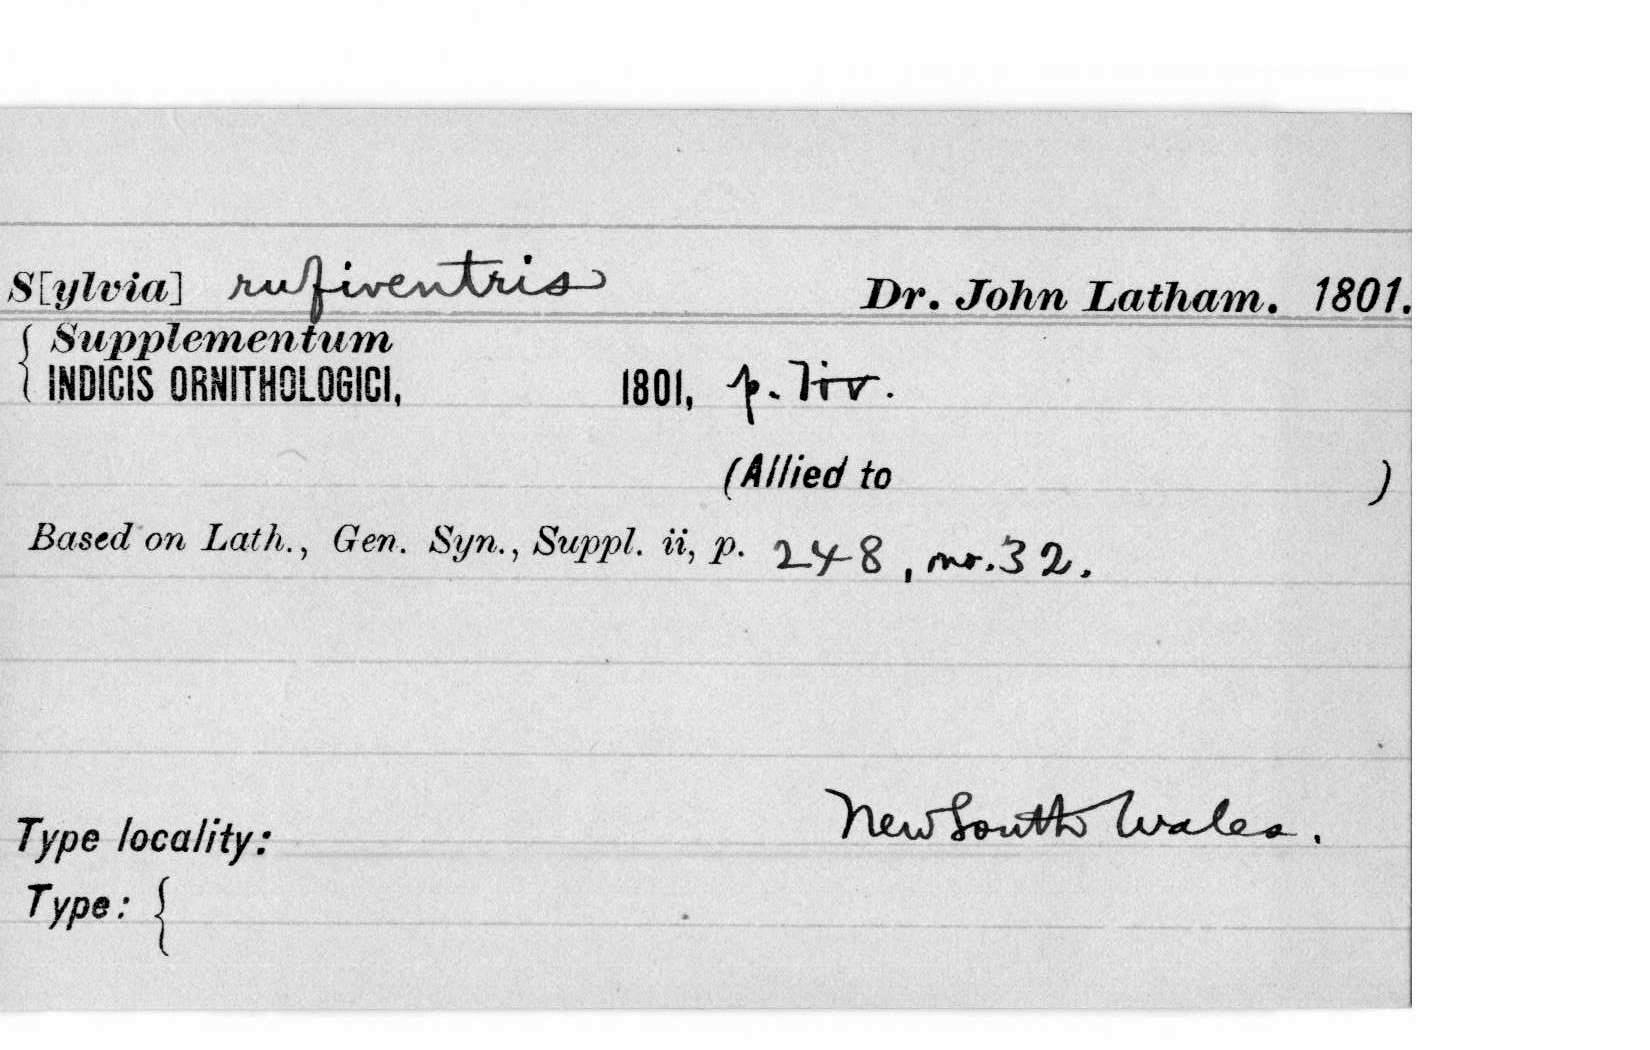 S[ylvia] rufiventris Dr. John Latham. 1801.
{ Supplementum
INDICIS ORNITHOLOGICI, 1801, p. liv.
(Allied to )
Based on Lath., Gen. Syn., Suppl. ii, p. 248, no. 32.
Type locality: New South Wales.
Type: {